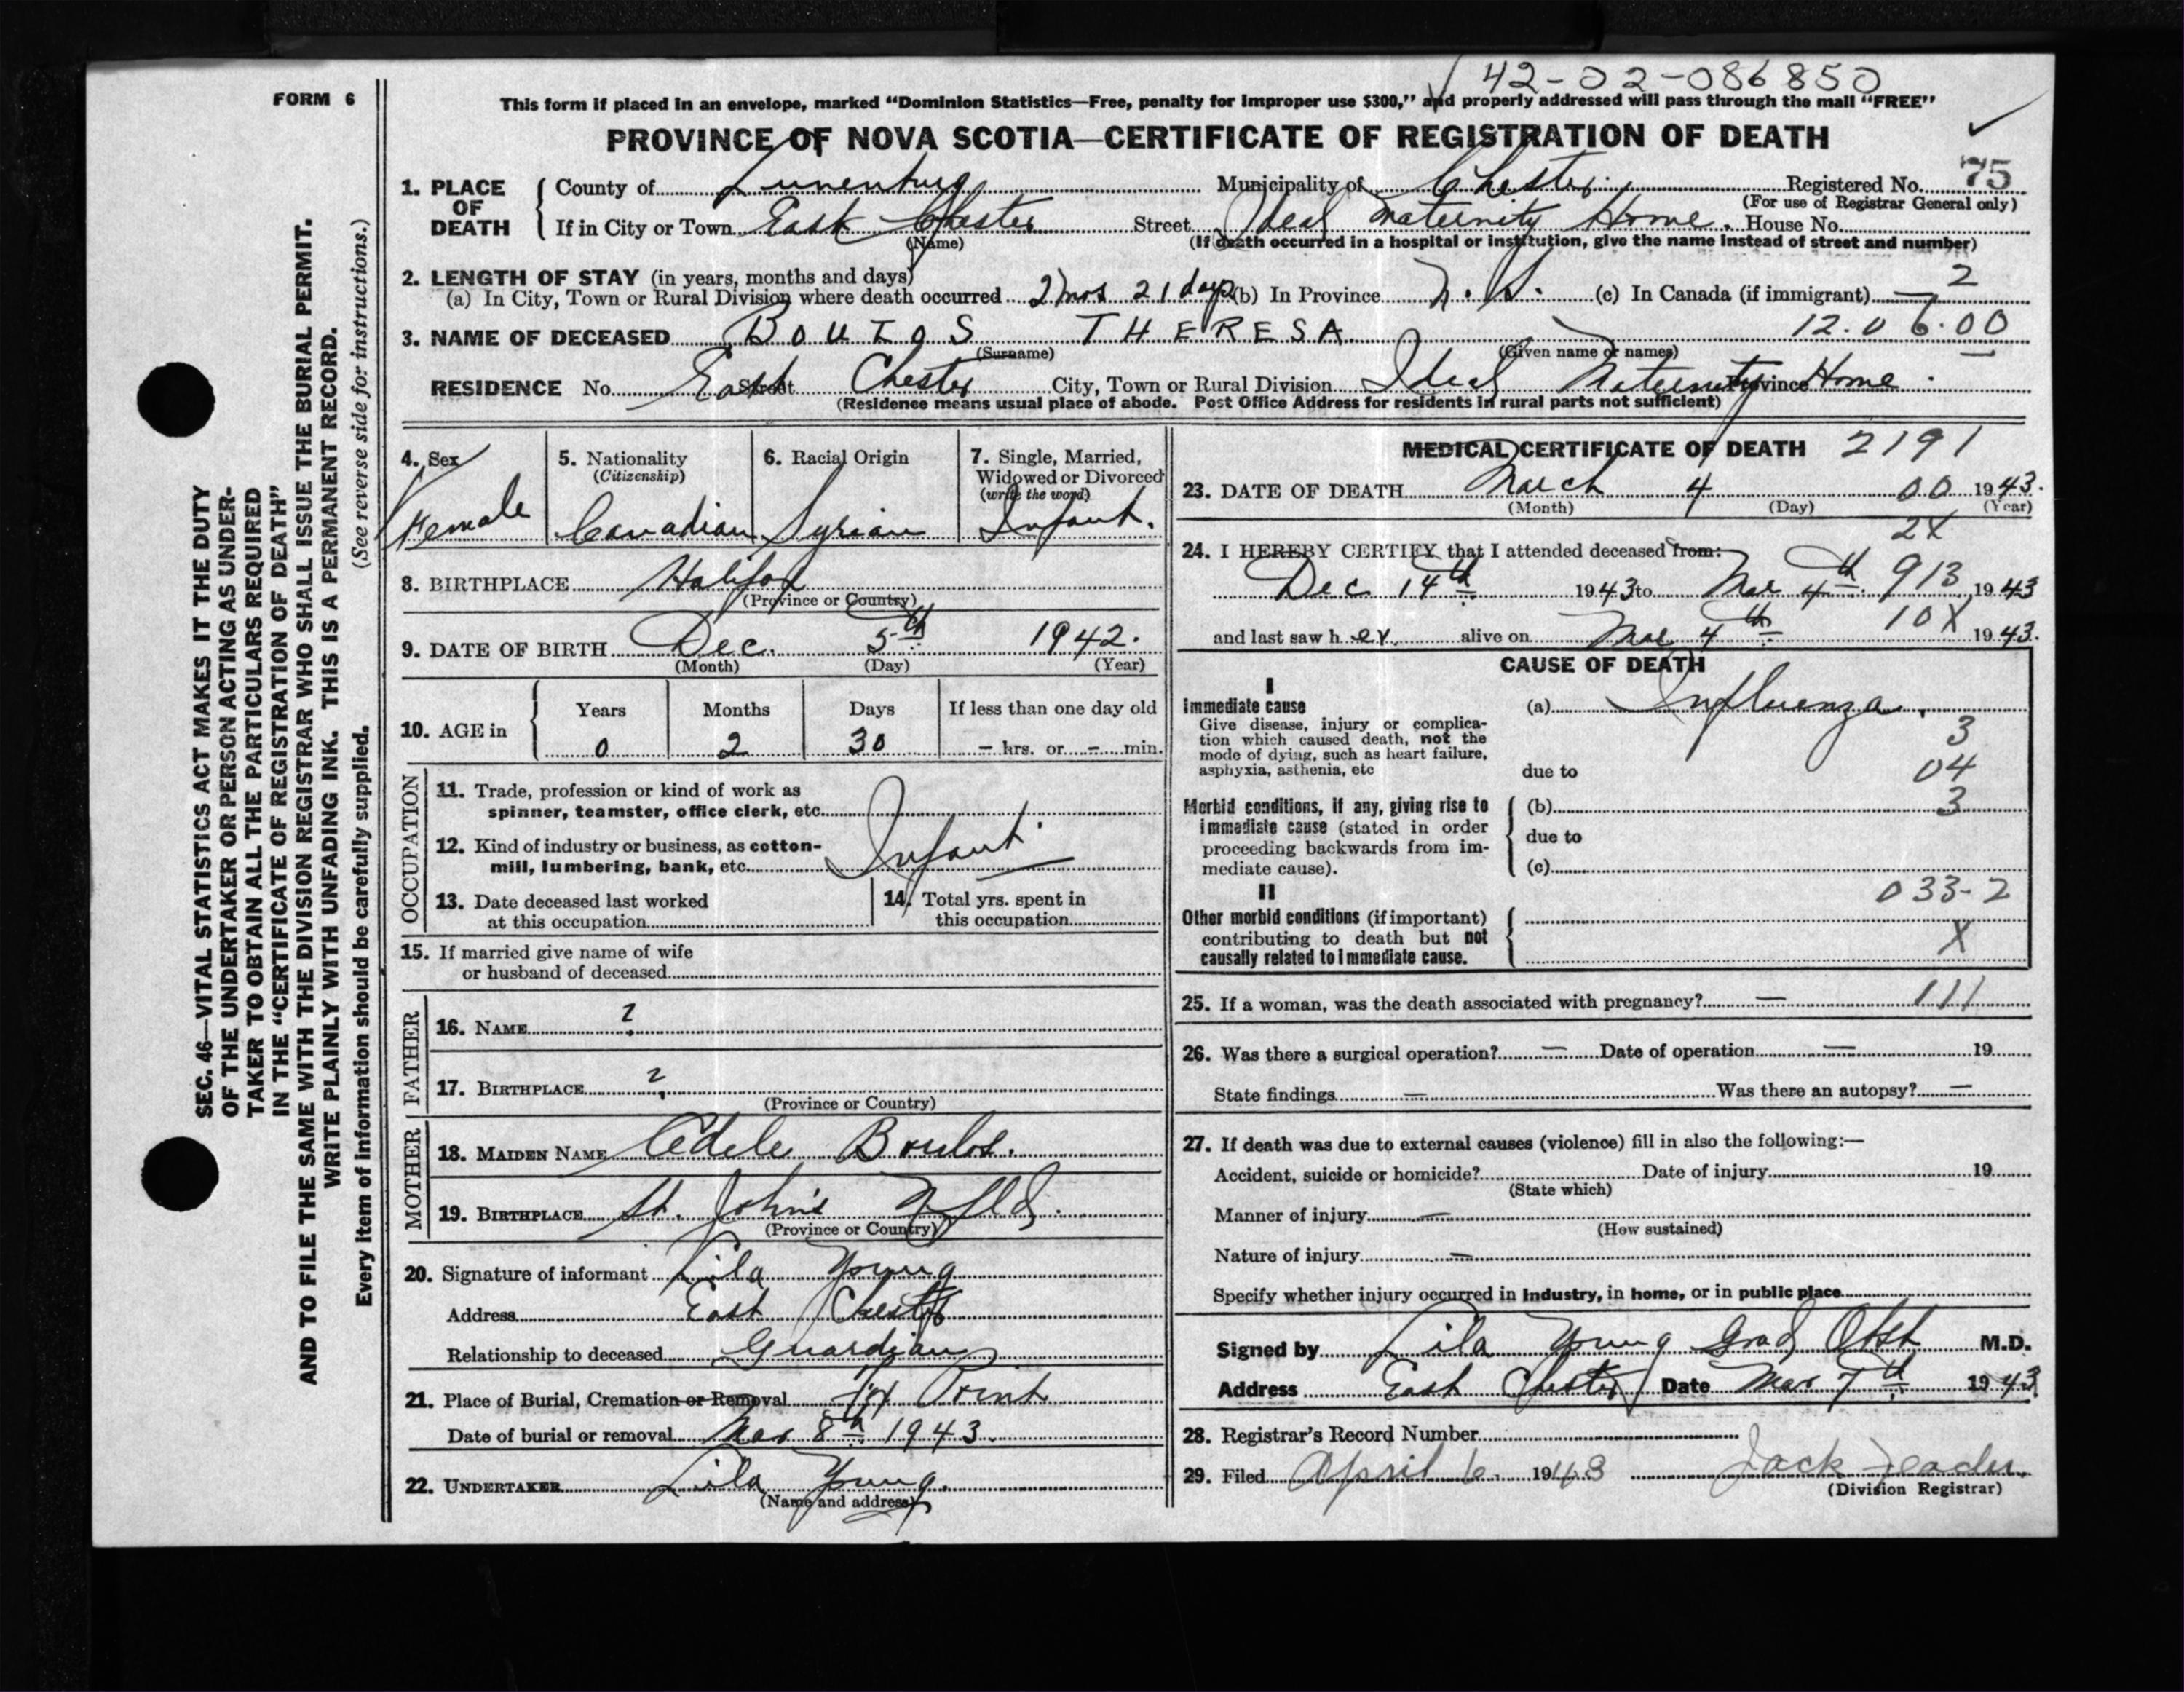 42-02-086850
FORM 6
This form if placed in an envelope, marked "Dominion Statistics—Free, penalty for improper use $300," and properly addressed will pass through the mail "FREE"
PROVINCE OF NOVA SCOTIA—CERTIFICATE OF REGISTRATION OF DEATH
SEC. 46—VITAL STATISTICS ACT MAKES IT THE DUTY
OF THE UNDERTAKER OR PERSON ACTING AS UNDER-
TAKER TO OBTAIN ALL THE PARTICULARS REQUIRED
IN THE "CERTIFICATE OF REGISTRATION OF DEATH"
AND TO FILE THE SAME WITH THE DIVISION REGISTRAR WHO SHALL ISSUE THE BURIAL PERMIT.
WRITE PLAINLY WITH UNFADING INK. THIS IS A PERMANENT RECORD.
Every item of information should be carefully supplied. (See reverse side for instructions.)
1. PLACE OF DEATH County of Lunenburg Municipality of Chester Registered No. 75
(For use of Registrar General only)
If in City or Town East Chester Street Ideal Maternity Home. House No.
(Name) (If death occurred in a hospital or institution, give the name instead of street and number)
2. LENGTH OF STAY (in years, months and days)
(a) In City, Town or Rural Division where death occurred 2 mos 21 days (b) In Province N.S. (c) In Canada (if immigrant) — 2
3. NAME OF DECEASED BOULOS THERESA 12.06.00
(Surname) (Given name or names)
RESIDENCE No. East Street Chester City, Town or Rural Division Ideal Maternity Province Home.
(Residence means usual place of abode. Post Office Address for residents in rural parts not sufficient)
4. Sex 5. Nationality 6. Racial Origin 7. Single, Married,
(Citizenship) Widowed or Divorced
(write the word)
Female Canadian Syrian Infant.
8. BIRTHPLACE Halifax
(Province or Country)
9. DATE OF BIRTH Dec. 5th 1942.
(Month) (Day) (Year)
10. AGE in Years Months Days If less than one day old
0 2 30 – hrs. or – min.
OCCUPATION
11. Trade, profession or kind of work as
spinner, teamster, office clerk, etc.
12. Kind of industry or business, as cotton-
mill, lumbering, bank, etc. Infant
13. Date deceased last worked
at this occupation
14. Total yrs. spent in
this occupation
15. If married give name of wife
or husband of deceased
FATHER
16. NAME ?
17. BIRTHPLACE ?
(Province or Country)
MOTHER
18. MAIDEN NAME Adele Boulos.
19. BIRTHPLACE St. John's Nfld.
(Province or Country)
20. Signature of informant Lila Young
Address East Chester
Relationship to deceased Guardian
21. Place of Burial, Cremation or Removal Fox Point
Date of burial or removal Mar 8th 1943.
22. UNDERTAKER Lila Young.
(Name and address)
MEDICAL CERTIFICATE OF DEATH 2191
23. DATE OF DEATH March 4 00 1943.
(Month) (Day) (Year)
2X
24. I HEREBY CERTIFY that I attended deceased from:
Dec 14th 1943 to Mar 4th 913 1943
10X
and last saw her alive on Mar 4th 1943.
CAUSE OF DEATH
I
Immediate cause (a) Influenza.
Give disease, injury or complica-
tion which caused death, not the
mode of dying, such as heart failure,
asphyxia, asthenia, etc
3
due to 04
Morbid conditions, if any, giving rise to
immediate cause (stated in order
proceeding backwards from im-
mediate cause).
(b) 3
due to
(c)
II
033-2
Other morbid conditions (if important)
contributing to death but not
causally related to immediate cause.
X
25. If a woman, was the death associated with pregnancy? — 111
26. Was there a surgical operation? — Date of operation — 19
State findings — Was there an autopsy? —
27. If death was due to external causes (violence) fill in also the following:—
Accident, suicide or homicide? Date of injury 19
(State which)
Manner of injury —
(How sustained)
Nature of injury —
Specify whether injury occurred in Industry, in home, or in public place
Signed by Lila Young Grad Obst M.D.
Address East Chester Date Mar 7th 1943
28. Registrar's Record Number
29. Filed April 6. 1943 Jack
(Division Registrar)